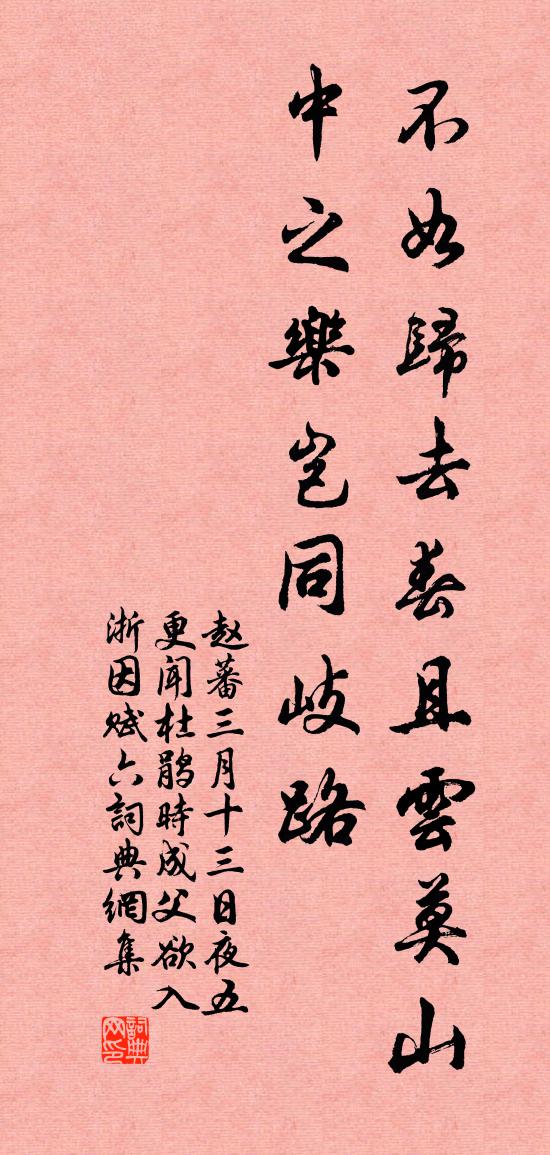 不如歸去春且雲莫山
中之樂豈同歧路
赵蕃三月十三日夜五
更聞杜鵑時成父欲入
浙因賦六詞典網集